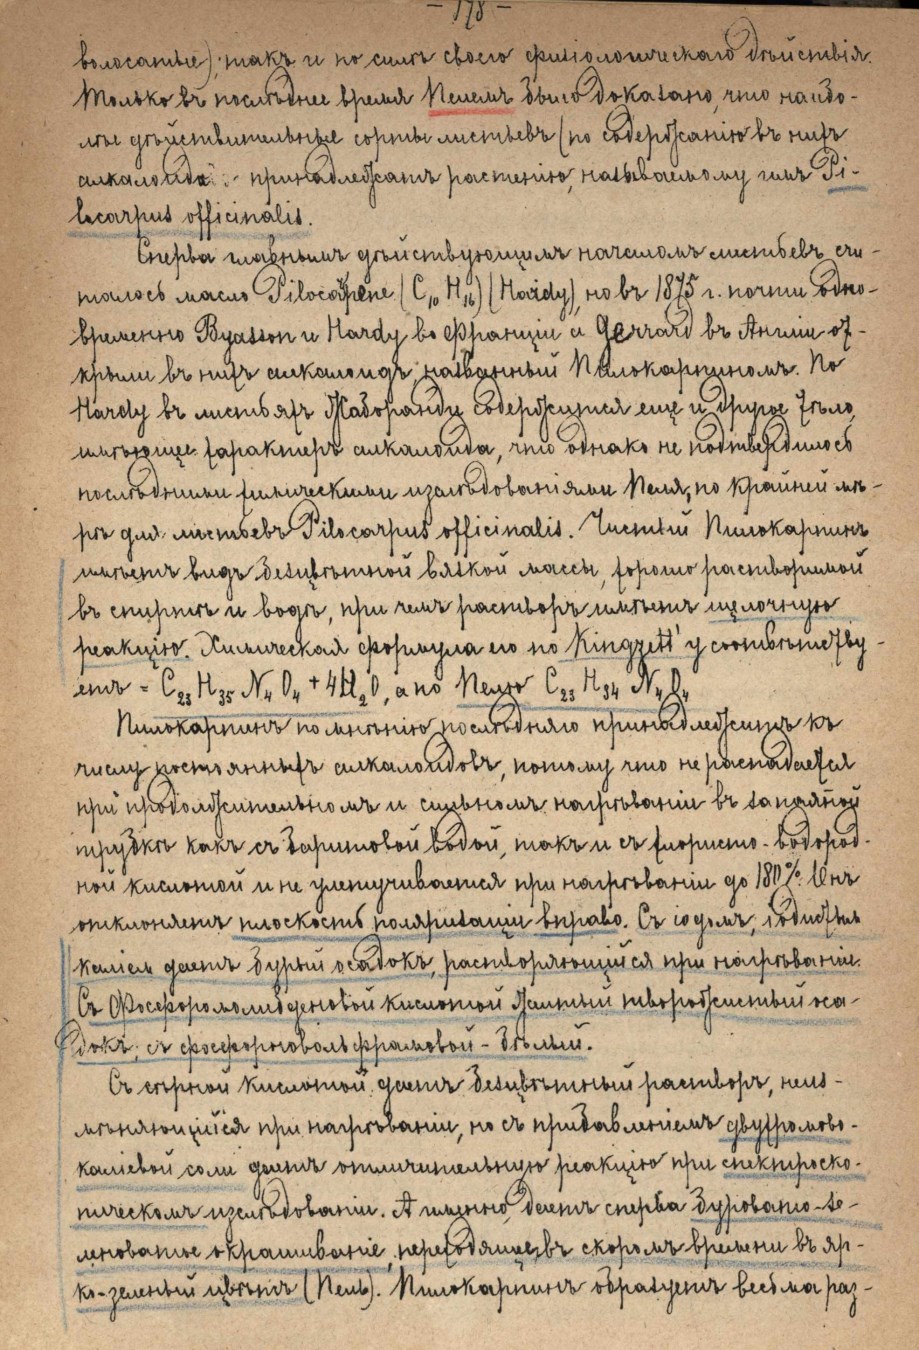 — 178 —
волосатые), такъ и по силѣ своего физіологическаго дѣйствія.
Только въ послѣднее время Пелемъ было доказано, что наибо-
лѣе дѣйствительные сорты листьевъ (по содержанію въ нихъ
алкалоида) принадлежатъ растенію, называемому имъ Pi-
locarpus officinalis.
Сперва главнымъ дѣйствующимъ началомъ листьевъ счи-
талось масло Pilocarpene (C₁₀ H₁₆) (Hardy), но въ 1875 г. почти одно-
временно Byasson и Hardy во Франціи и Gerrard въ Англіи от-
крыли въ нихъ алкалоидъ, названный Пилокарпиномъ. По
Hardy въ листьяхъ Жаборанди содержится еще и другое тѣло,
имѣющее характеръ алкалоида, что однако не подтвердилось
послѣдними химическими изслѣдованіями Пеля, по крайней мѣ-
рѣ для листьевъ Pilocarpus officinalis. Чистый Пилокарпинъ
имѣетъ видъ безцвѣтной вязкой массы, хорошо растворимой
въ спиртѣ и водѣ, при чемъ растворъ имѣетъ щелочную
реакцію. Химическая формула его по Kingzett'у соотвѣтству-
етъ = C₂₃ H₃₅ N₄ O₄ + 4H₂O, а по Пелю C₂₃ H₃₄ N₄ O₄
Пилокарпинъ по мнѣнію послѣдняго принадлежитъ къ
числу постоянныхъ алкалоидовъ, потому что не распадается
при продолжительномъ и сильномъ нагрѣваніи въ запаянной
трубкѣ какъ съ баритовой водой, такъ и съ хлористо-водород-
ной кислотой и не улетучивается при нагрѣваніи до 180%. Онъ
отклоняетъ плоскость поляризаціи вправо. Съ іодомъ, іодистымъ
каліемъ даетъ бурый осадокъ, растворяющійся при нагрѣваніи.
Съ Фосфоромолибденовой кислотой желтый творожистый оса-
докъ, съ фосфорновольфрамовой - бѣлый.
Съ сѣрной кислотой даетъ безцвѣтный растворъ, неиз-
мѣняющійся при нагрѣваніи, но съ прибавленіемъ двухромово-
каліевой соли даетъ отличительную реакцію при спектроско-
пическомъ изслѣдованіи. А именно, даетъ сперва буровато-зе-
леноватое окрашиваніе, переходящее въ скоромъ времени въ яр-
ко-зеленый цвѣтъ (Пель). Пилокарпинъ образуетъ весьма раз-